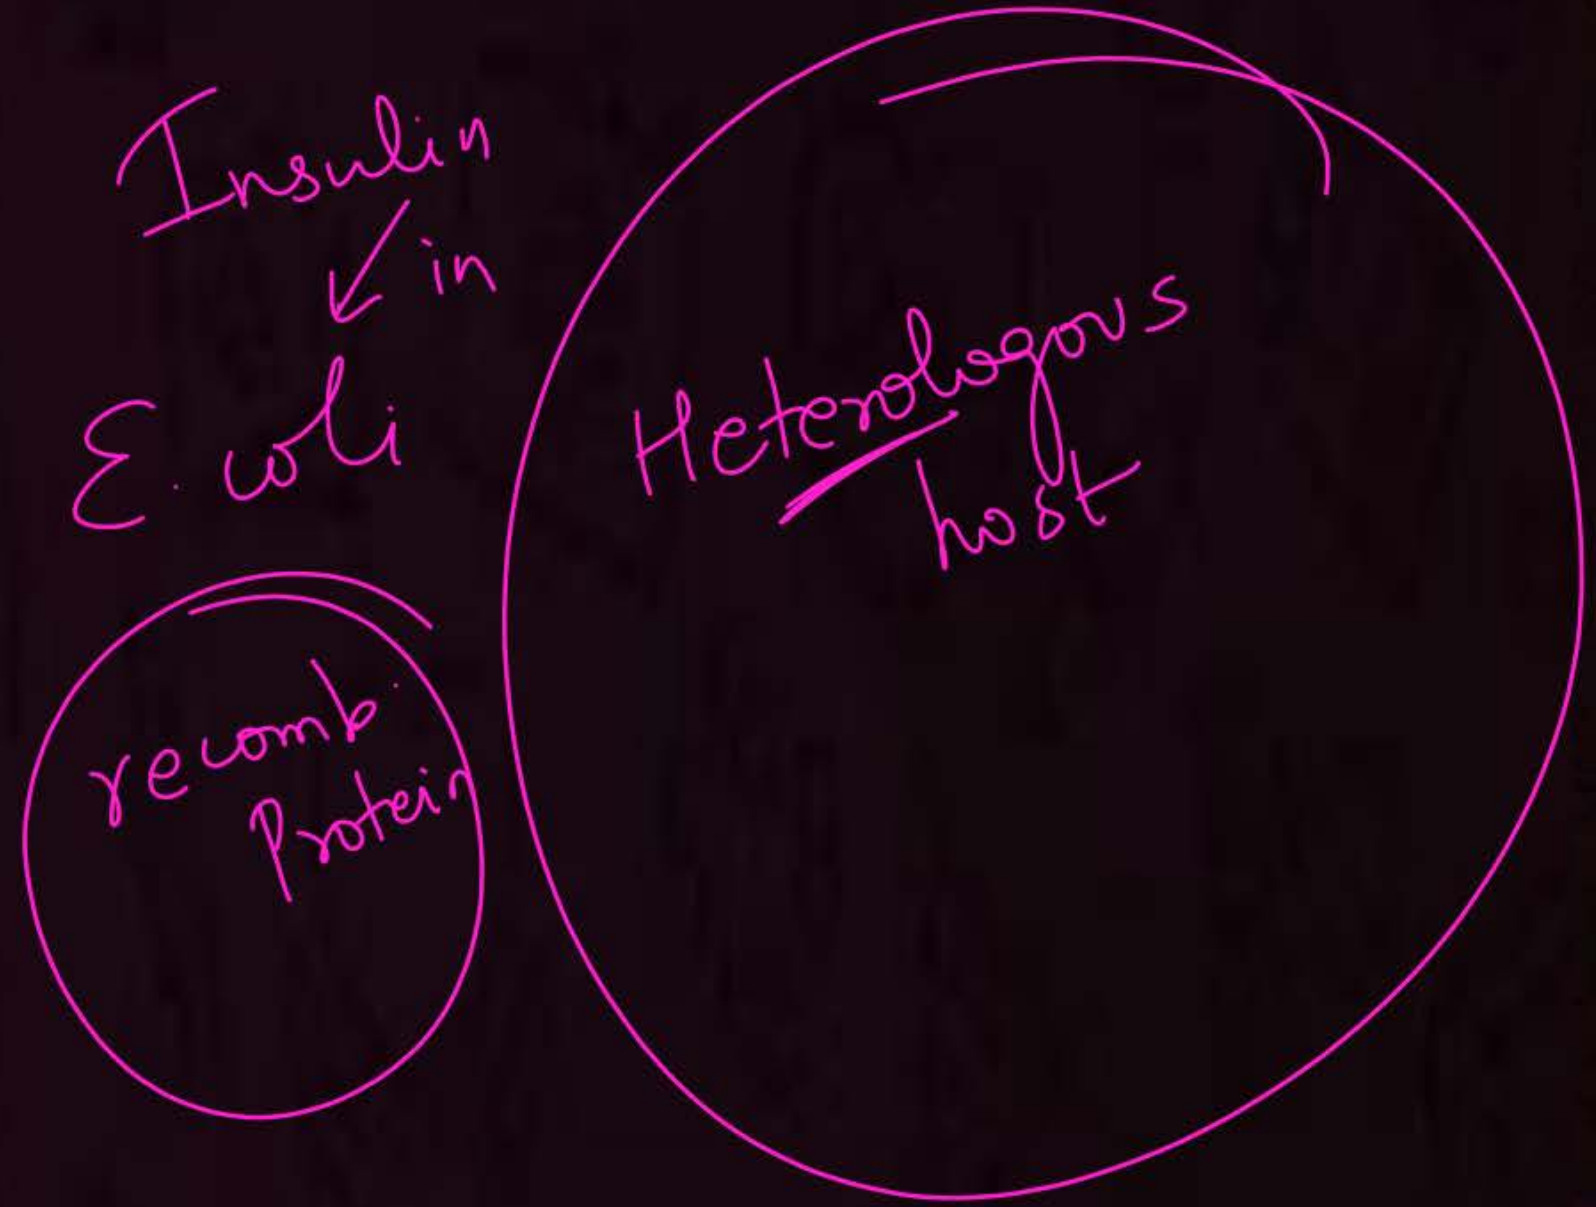 Insulin
in
E. coli
recomb.
Protein
Heterologous
host